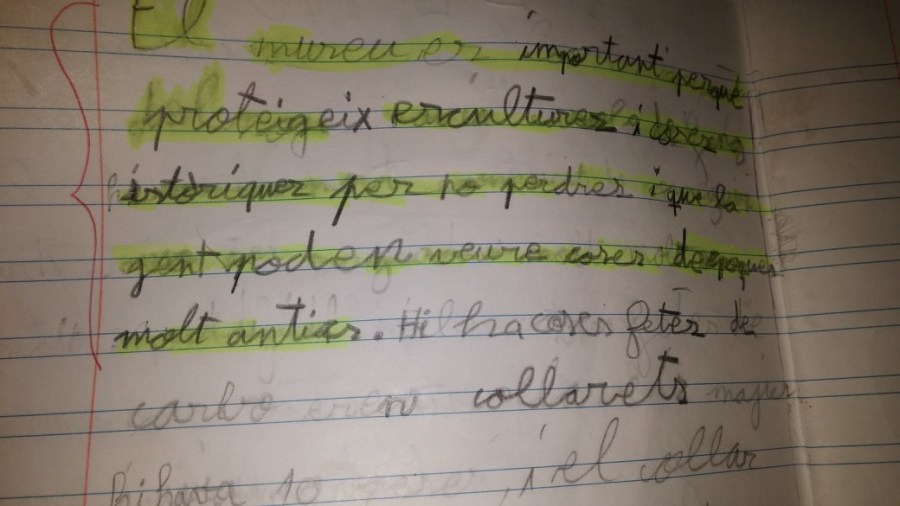 El mureu es important perquè
proteigeix escultures i coses
històriques per no perdres i que la
gent poden veure coses de epoques
molt antics. Hi ha coses fetes de
carbo eren collarets
hi havia 10 i el collar